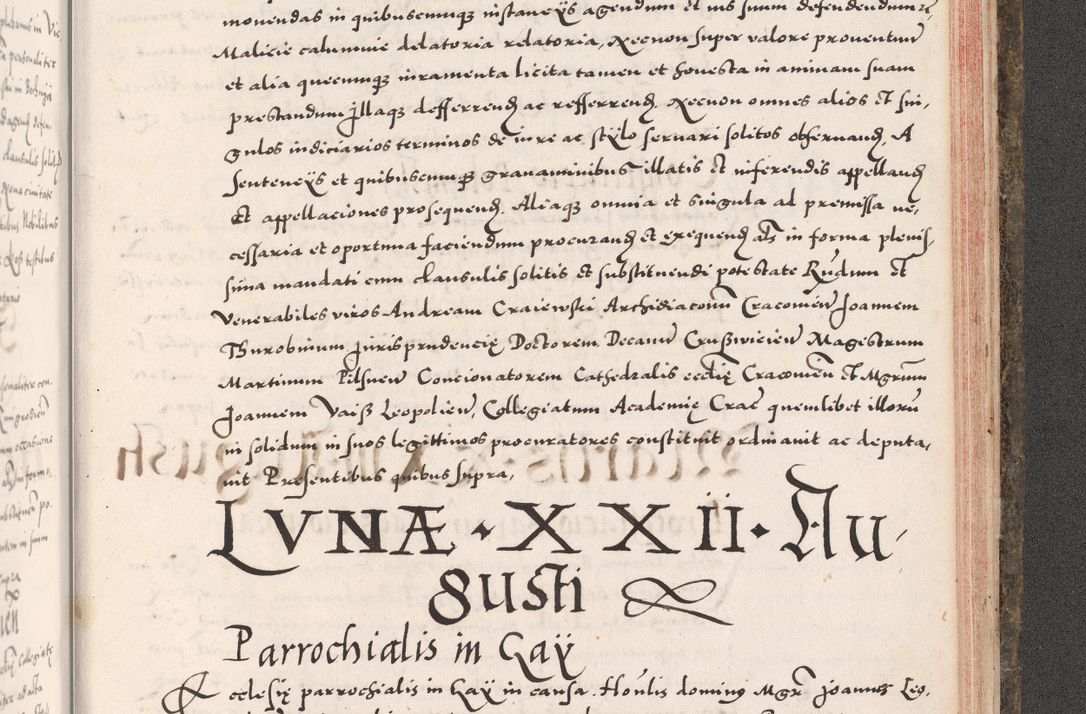 movendas in quibuscumq3 instancÿs agendum et ius suum defendendum et
Malicie calumnie delatoria relatoria, Necnon super valore proventuum
et alia quecumq3 iuramenta licita tamen et honesta in animam suam
prestandum Illaq3 defferrend et refferrend. Necnon omnes alios et sin,
gulos iudiciarios terminos de iure ac stylo servari solitos observand, A
sentencÿs et quibuscumq3 gravaminibus illatis et inferendis appelland
Et appellaciones prosequend. Aliaq3 omnia et singula ad premissa ne,
cessaria et oportuna faciendum procurand et exequend als in forma plenis
sima mandati cum clausulis solitis et substituendi potestate Rndum et
Venerabiles viros Andream Craiewski Archidiaconum Cracovien Joannem
Thurobinum Jurisprudencię Doctorem Decanum Cruszwicien Magestrum
Martinum Pilsnen Concionatorem Cathedralis ecclię Cracovien et Mgrum
Joannem Vaisz Leopolien, Collegiatum Academię Crac quemlibet illorum
in solidum in suos legittimos procuratores constituit ordinavit ac deputa,
vit Presentibus quibus supra,
LVNÆ · X X ii · Au-
gusti
Parrochialis in Gaÿ
Ecclesię parrochialis in Gaÿ in causa Honlis domini Mgri Joannis Leo,